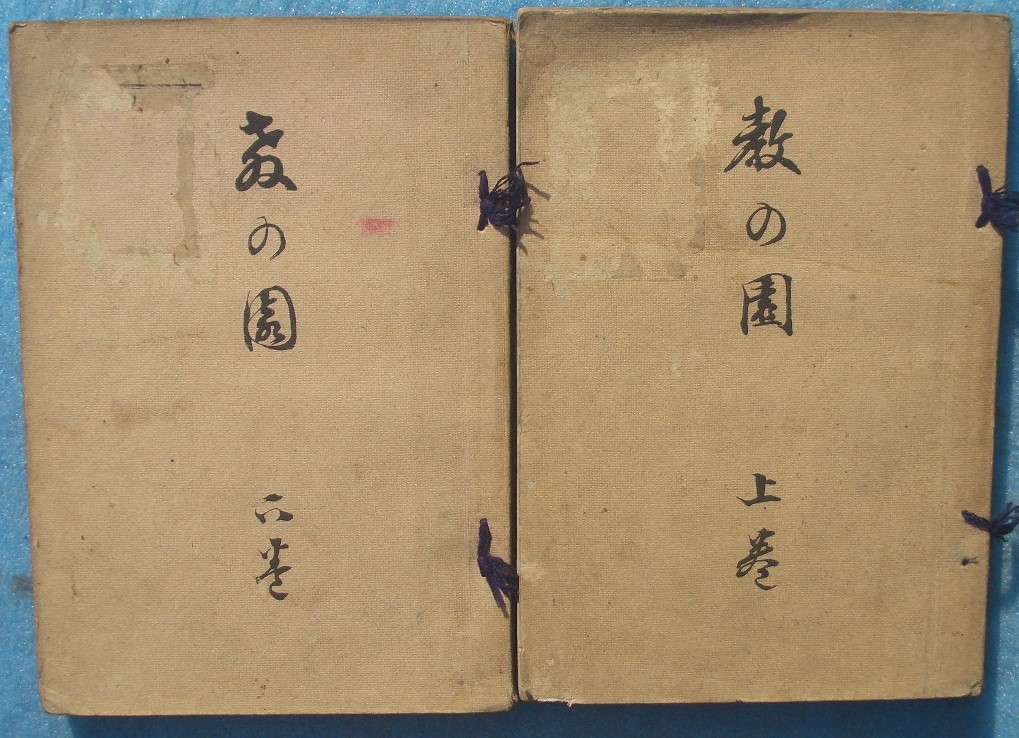 教の園
上巻
教の園
下巻